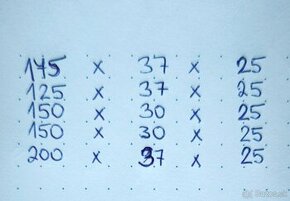 175 x 37 x 25
125 x 37 x 25
150 x 30 x 25
150 x 30 x 25
200 x 37 x 25